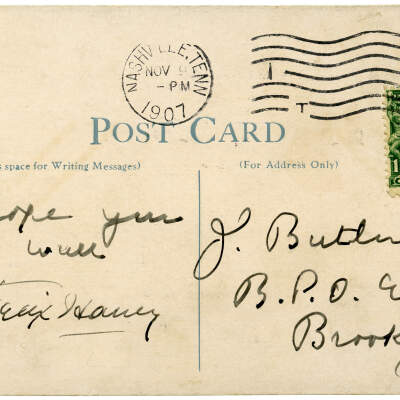 NASHVILLE, TENN
NOV 9
-PM
1907
I
T
POST CARD
s space for Writing Messages)
(For Address Only)
1
ope you
well
Felix Haney
J. Butler
B. P. O. E
Brook